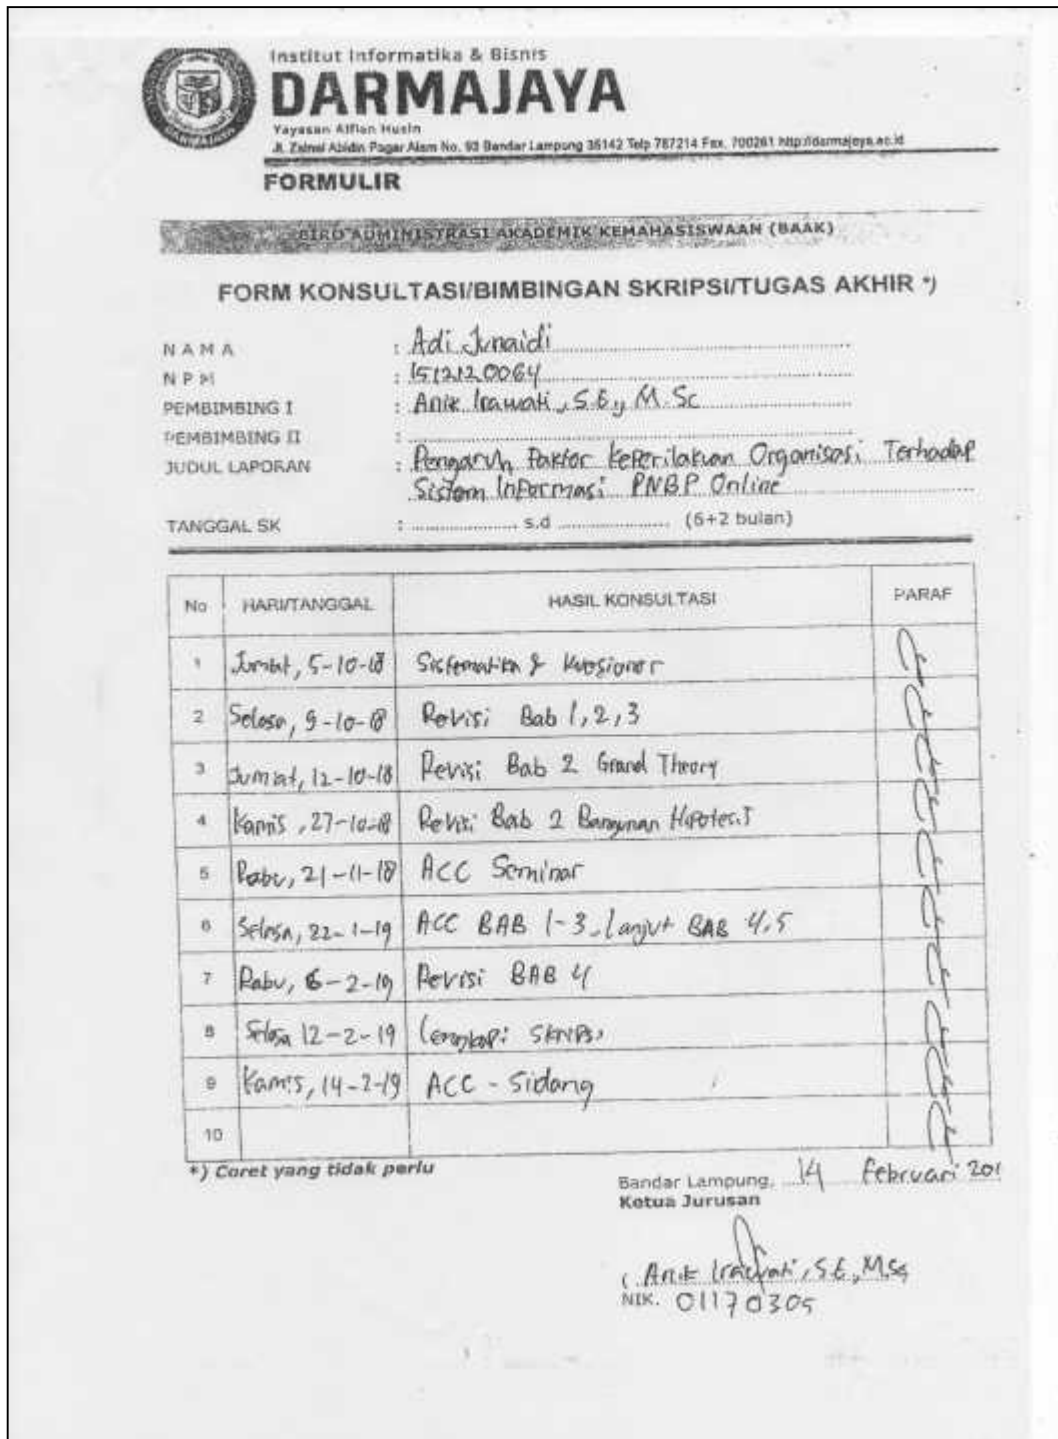 Institut Informatika & Bisnis
DARMAJAYA
Yayasan Alfian Husin
Jl. Zainal Abidin Pagar Alam No. 93 Bandar Lampung 35142 Telp 787214 Fax. 700261 http://darmajaya.ac.id
FORMULIR
BIRO ADMINISTRASI AKADEMIK KEMAHASISWAAN (BAAK)
FORM KONSULTASI/BIMBINGAN SKRIPSI/TUGAS AKHIR *)
N A M A : Adi Junaidi
N P M : 1512120064
PEMBIMBING I : Anik Irawati, S.E., M.Sc
PEMBIMBING II :
JUDUL LAPORAN : Pengaruh Faktor Keperilakuan Organisasi Terhadap
Sistem Informasi PNBP Online
TANGGAL SK : .................... s.d .................... (6+2 bulan)
No HARI/TANGGAL HASIL KONSULTASI PARAF
1 Jumat, 5-10-18 Sistematika & Kuesioner
2 Selasa, 9-10-18 Revisi Bab 1, 2, 3
3 Jumat, 12-10-18 Revisi Bab 2 Grand Theory
4 Kamis, 27-10-18 Revisi Bab 2 Bangunan Hipotesis
5 Rabu, 21-11-18 ACC Seminar
6 Selasa, 22-1-19 ACC BAB 1-3, lanjut BAB 4,5
7 Rabu, 6-2-19 Revisi BAB 4
8 Selasa 12-2-19 Lengkapi Skripsi
9 Kamis, 14-2-19 ACC - Sidang
10
*) Coret yang tidak perlu
Bandar Lampung, 14 Februari 201
Ketua Jurusan
( Anik Irawati, S.E, M.Sc
NIK. 01170305